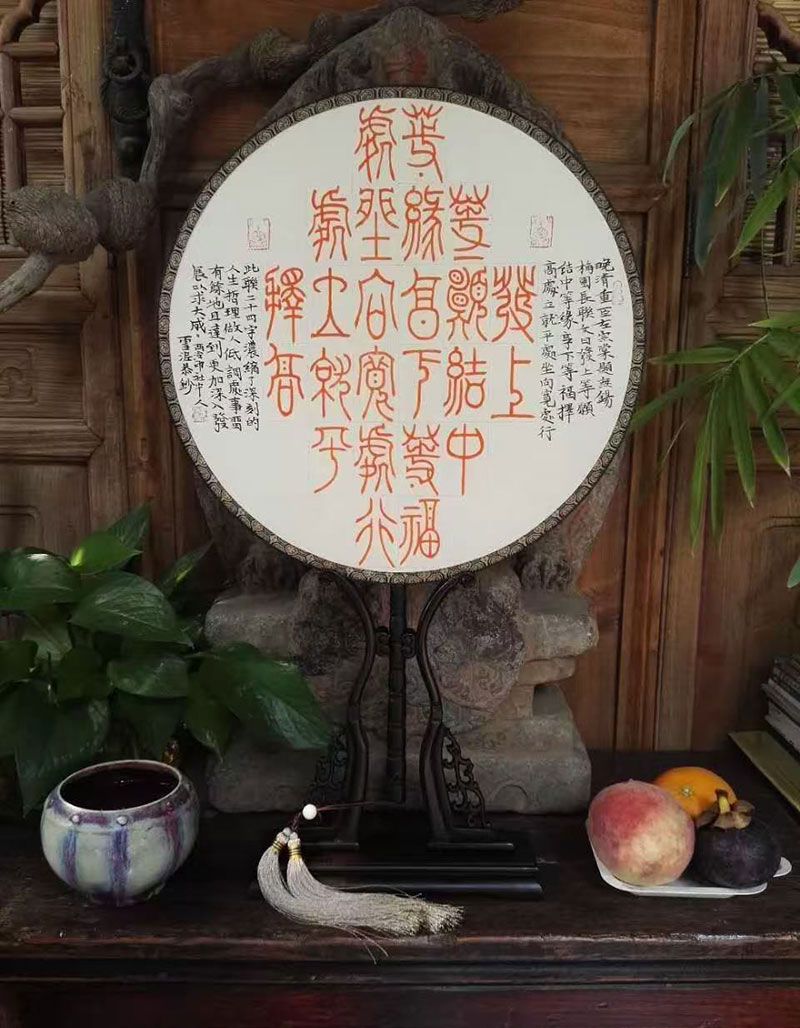 晚清重臣左宗棠題無錫
梅園長聯文曰發上等願
结中等缘享下等福擇
高處立就平處坐向寬處行
發上
等願結中
等緣享下等福
處坐向寬處行
處立就平
擇高
此聯二十四字濃縮了深刻的
人生哲理做人低調處事留
有餘地且達到更加深入發
展以求大成
雪恭鈔